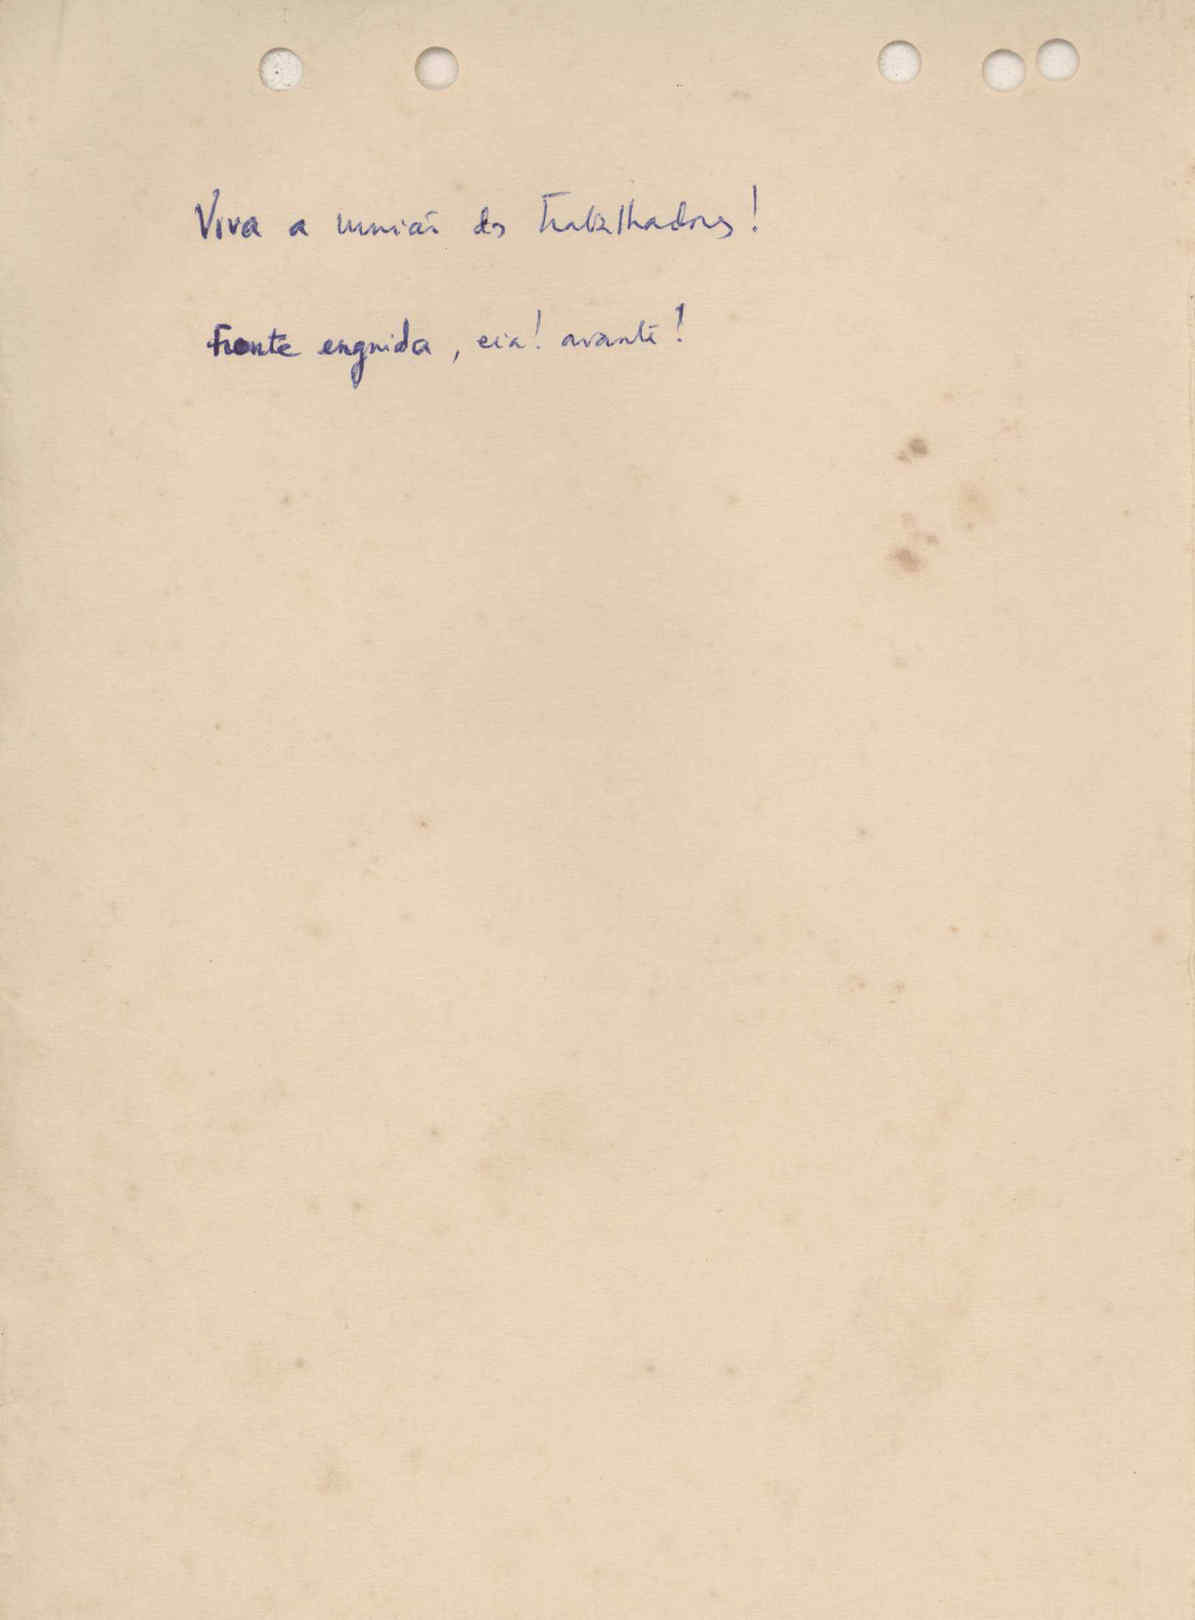 Viva a união dos trabalhadores!
Fronte erguida, eia! avante!